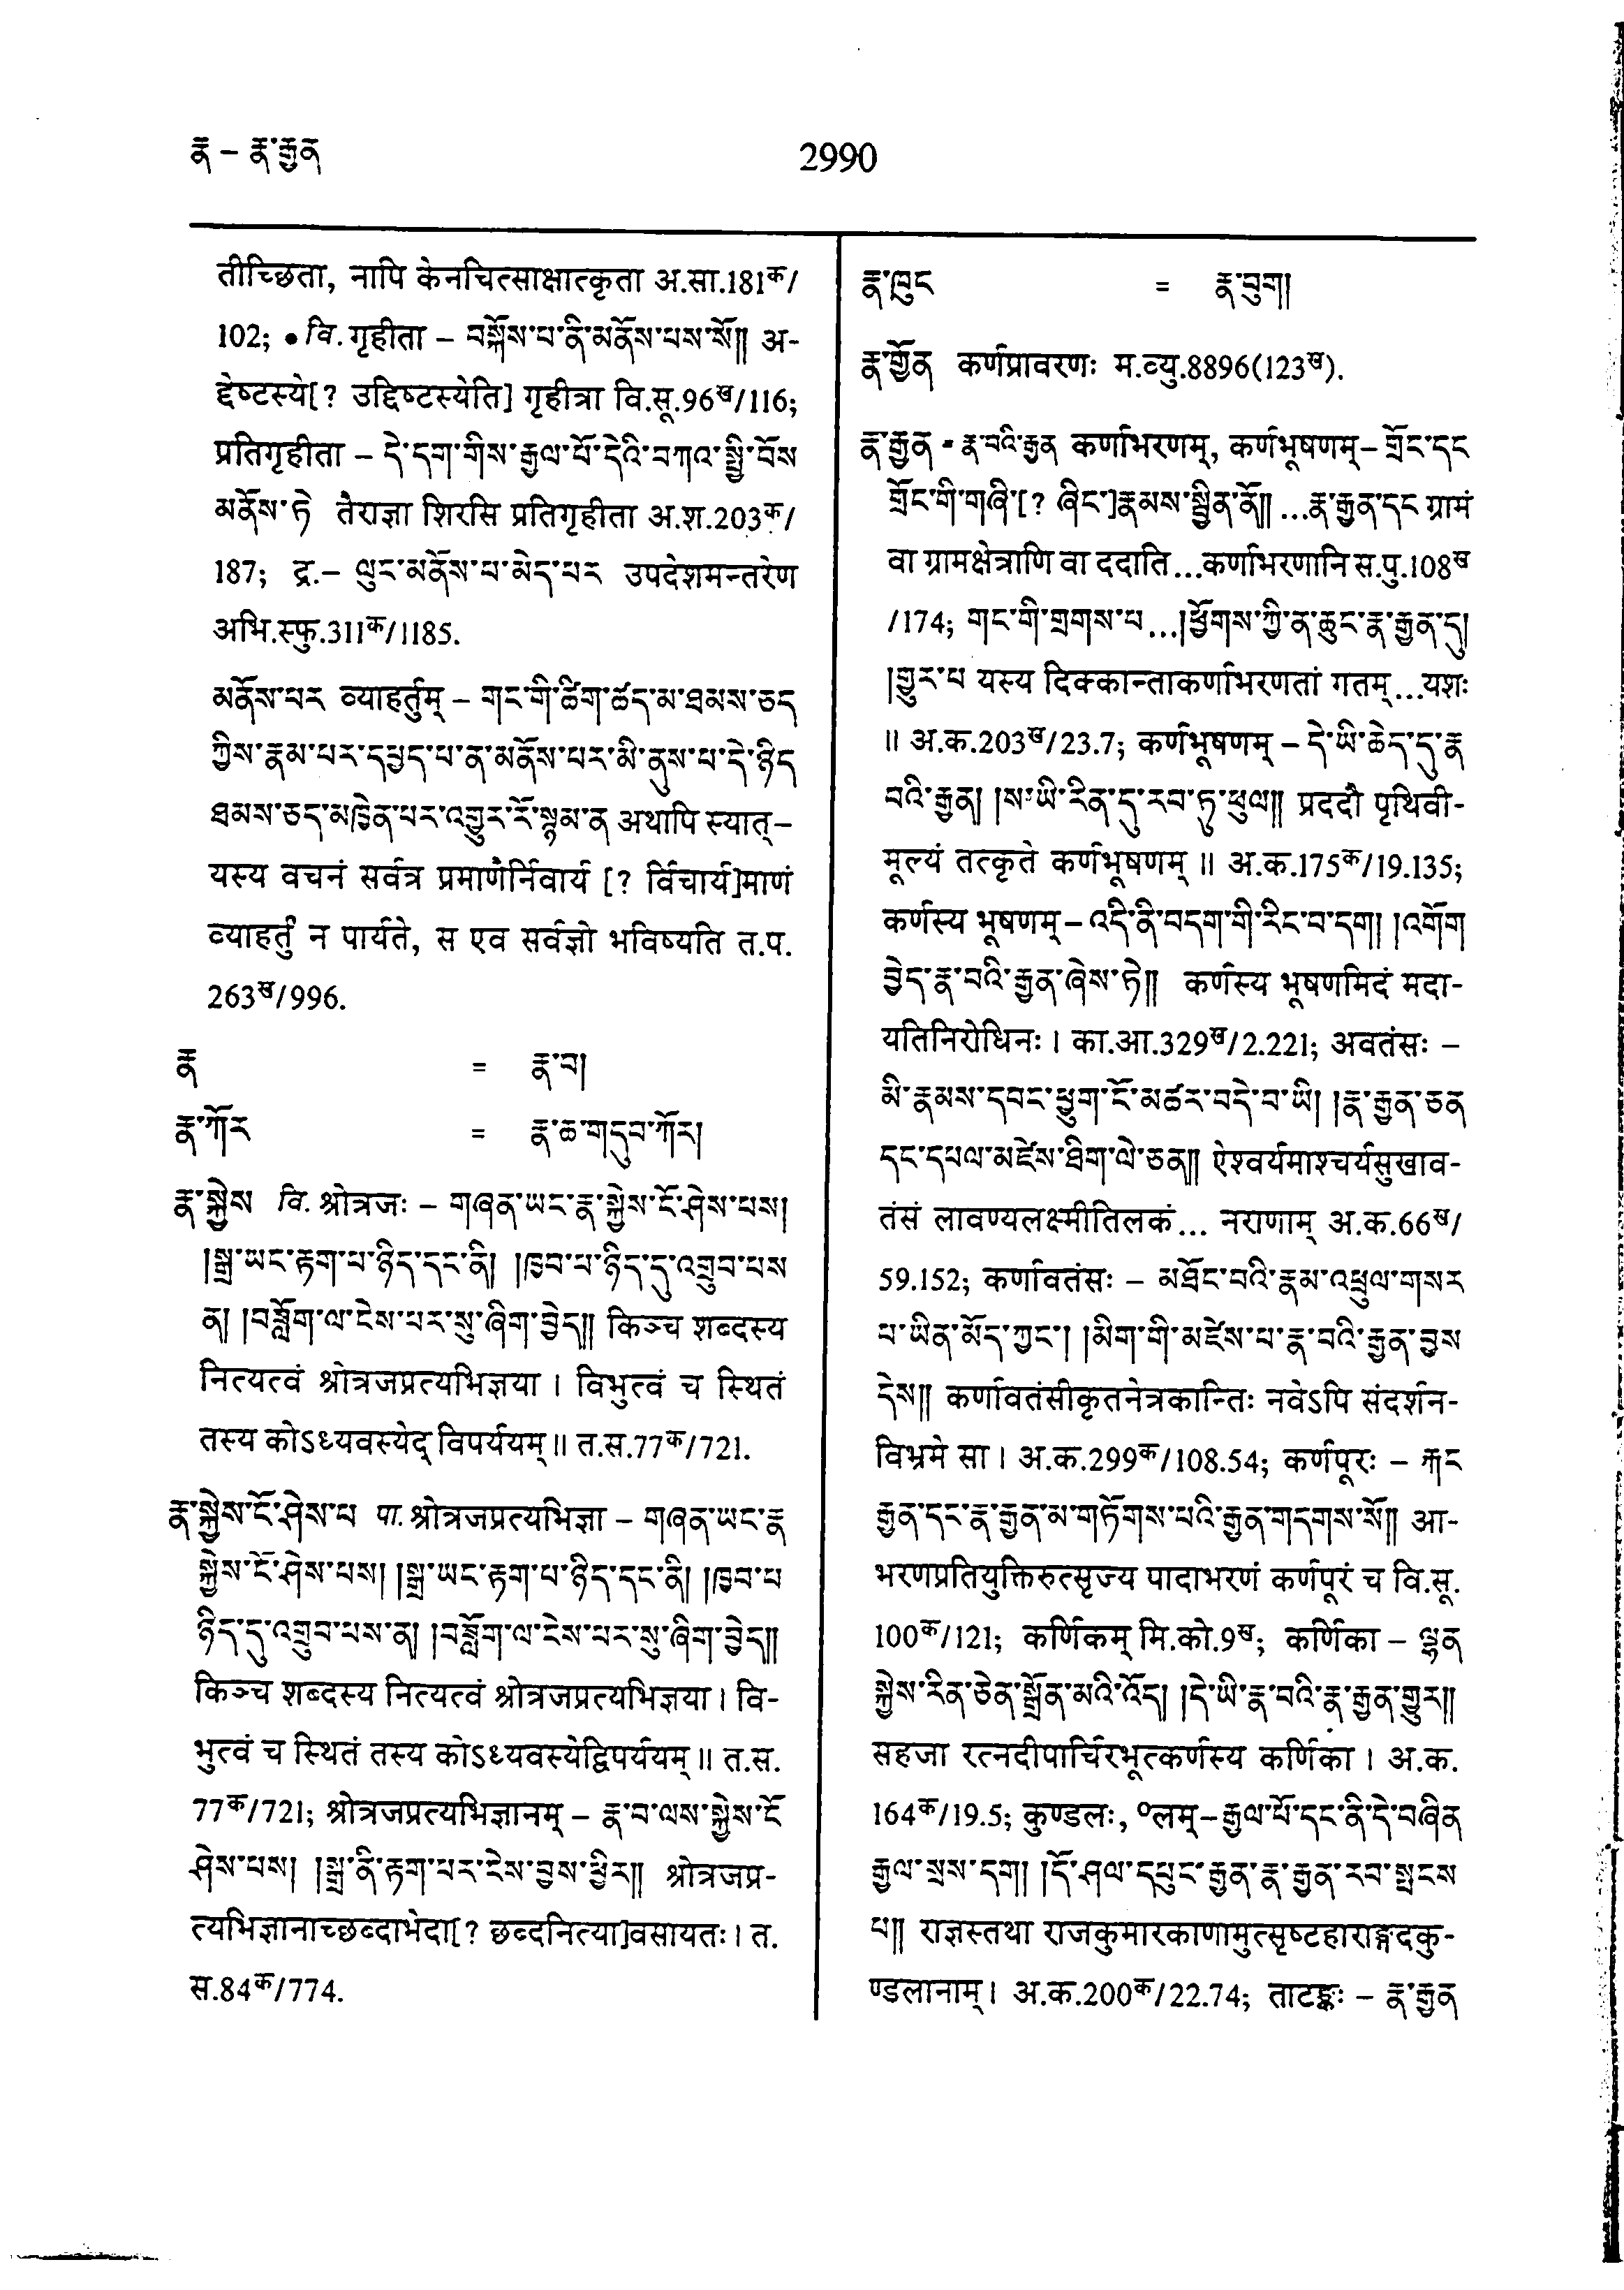 རྣ – རྣ་རྒྱན
2990
तीच्छिता, नापि केनचित्साक्षात्कृता अ.सा.181क/
102; • वि. गृहीता – བསྐོས་པ་ནི་མནོས་པས་སོ༎ अ-
द्देष्टस्ये[? उद्दिष्टस्येति] गृहीत्रा वि.सू.96ख/116;
प्रतिगृहीता – དེ་དག་གིས་རྒྱལ་པོ་དེའི་བཀའ་སྤྱི་བོས
མནོས་ཏེ तैराज्ञा शिरसि प्रतिगृहीता अ.श.203क/
187; द्र.– ལུང་མནོས་པ་མེད་པར उपदेशमन्तरेण
अभि.स्फु.311क/1185.
མནོས་པར व्याहर्तुम् – གང་གི་ཚིག་ཚད་མ་ཐམས་ཅད
ཀྱིས་རྣམ་པར་དཔྱད་པ་ན་མནོས་པར་མི་ནུས་པ་དེ་ཉིད
ཐམས་ཅད་མཁྱེན་པར་འགྱུར་རོ་སྙམ་ན अथापि स्यात्–
यस्य वचनं सर्वत्र प्रमाणैर्निवार्य [? र्विचार्य]माणं
व्याहर्तुं न पार्यते, स एव सर्वज्ञो भविष्यति त.प.
263ख/996.
རྣ = རྣ་བ།
རྣ་ཀོར = རྣ་ཆ་གདུབ་ཀོར།
རྣ་སྐྱེས वि. श्रोत्रजः – གཞན་ཡང་རྣ་སྐྱེས་ངོ་ཤེས་པས།
།སྒྲ་ཡང་རྟག་པ་ཉིད་དང་ནི། །ཁྱབ་པ་ཉིད་དུ་འགྲུབ་པས
ན། །བཟློག་ལ་ངེས་པར་སུ་ཞིག་བྱེད༎ किञ्च शब्दस्य
नित्यत्वं श्रोत्रजप्रत्यभिज्ञया । विभुत्वं च स्थितं
तस्य कोऽध्यवस्येद् विपर्ययम् ॥ त.स.77क/721.
རྣ་སྐྱེས་ངོ་ཤེས་པ पा. श्रोत्रजप्रत्यभिज्ञा – གཞན་ཡང་རྣ
སྐྱེས་ངོ་ཤེས་པས། །སྒྲ་ཡང་རྟག་པ་ཉིད་དང་ནི། །ཁྱབ་པ
ཉིད་དུ་འགྲུབ་པས་ན། །བཟློག་ལ་ངེས་པར་སུ་ཞིག་བྱེད༎
किञ्च शब्दस्य नित्यत्वं श्रोत्रजप्रत्यभिज्ञया । वि-
भुत्वं च स्थितं तस्य कोऽध्यवस्येद्विपर्ययम् ॥ त.स.
77क/721; श्रोत्रजप्रत्यभिज्ञानम् – རྣ་བ་ལས་སྐྱེས་ངོ
ཤེས་པས། །སྒྲ་ནི་རྟག་པར་ངེས་བྱས་ཕྱིར༎ श्रोत्रजप्र-
त्यभिज्ञानाच्छब्दाभेदा[? छब्दनित्या]वसायतः । त.
स.84क/774.
རྣ་ཁུང = རྣ་བུག།
རྣ་གྱོན कर्णप्रावरणः म.व्यु.8896(123ख).
རྣ་རྒྱན = རྣ་བའི་རྒྱན कर्णाभरणम्, कर्णभूषणम् – གྲོང་དང
གྲོང་གི་གཞི་[? ཞིང་]རྣམས་སྦྱིན་ནོ༎ ...རྣ་རྒྱན་དང ग्रामं
वा ग्रामक्षेत्राणि वा ददाति...कर्णाभरणानि स.पु.108ख
/174; གང་གི་གྲགས་པ...།ཕྱོགས་ཀྱི་ན་ཆུང་རྣ་རྒྱན་དུ།
།གྱུར་པ यस्य दिक्कान्ताकर्णाभरणतां गतम्...यशः
॥ अ.क.203ख/23.7; कर्णभूषणम् – དེ་ཡི་ཆེད་དུ་རྣ
བའི་རྒྱན། །ས་ཡི་རིན་དུ་རབ་ཏུ་ཕུལ༎ प्रददौ पृथिवी-
मूल्यं तत्कृते कर्णभूषणम् ॥ अ.क.175क/19.135;
कर्णस्य भूषणम् – འདི་ནི་བདག་གི་རིང་བ་དག། །འགོག
བྱེད་རྣ་བའི་རྒྱན་ཞེས་ཏེ༎ कर्णस्य भूषणमिदं मदा-
यतिनिरोधिनः । का.आ.329ख/2.221; अवतंसः –
མི་རྣམས་དབང་ཕྱུག་ངོ་མཚར་བདེ་བ་ཡི། །རྣ་རྒྱན་ཅན
དང་དཔལ་མཛེས་ཐིག་ལེ་ཅན༎ ऐश्वर्यमाश्चर्यसुखाव-
तंसं लावण्यलक्ष्मीतिलकं... नराणाम् अ.क.66ख/
59.152; कर्णावतंसः – མཐོང་བའི་རྣམ་འཕྲུལ་གསར
པ་ཡིན་མོད་ཀྱང་། །མིག་གི་མཛེས་པ་རྣ་བའི་རྒྱན་བྱས
དེས༎ कर्णावतंसीकृतनेत्रकान्तिः नवेऽपि संदर्शन-
विभ्रमे सा । अ.क.299क/108.54; कर्णपूरः – རྐང
རྒྱན་དང་རྣ་རྒྱན་མ་གཏོགས་པའི་རྒྱན་གདགས་སོ༎ आ-
भरणप्रतियुक्तिरुत्सृज्य पादाभरणं कर्णपूरं च वि.सू.
100क/121; कर्णिकम् मि.को.9ख; कर्णिका – ལྷན
སྐྱེས་རིན་ཅེན་སྒྲོན་མའི་འོད། །དེ་ཡི་རྣ་བའི་རྣ་རྒྱན་གྱུར༎
सहजा रत्नदीपार्चिरभूत्कर्णस्य कर्णिका । अ.क.
164क/19.5; कुण्डलः, ०लम् – རྒྱལ་པོ་དང་ནི་དེ་བཞིན
རྒྱལ་སྲས་དག། །དོ་ཤལ་དཔུང་རྒྱན་རྣ་རྒྱན་རབ་སྤངས
པ༎ राज्ञस्तथा राजकुमारकाणामुत्सृष्टहाराङ्गदकु-
ण्डलानाम् । अ.क.200क/22.74; ताटङ्कः – རྣ་རྒྱན